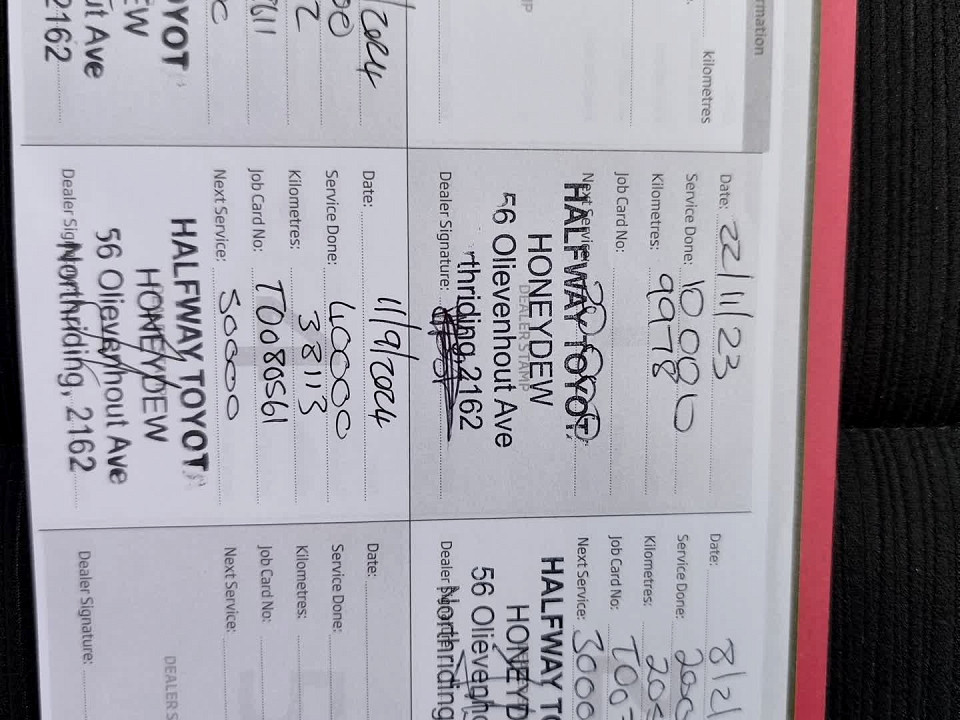 mation
kilometres
Date: 22/11/23
Service Done: 10 000
Kilometres: 9978
Job Card No:
Next Service: 20 000
HALFWAY TOYOT
HONEYDEW
DEALER STAMP
56 Olievenhout Ave
rthriding, 2162
Dealer Signature:
Date: 8/2/
Service Done: 200
Kilometres: 20
Job Card No: T00
Next Service: 3000
HALFWAY TO
HONEYD
56 Olievenh
Northriding
Dealer
2024
00
2
7611
OYOT
EW
ut Ave
2162
Date: 11/9/2024
Service Done: 40000
Kilometres: 38113
Job Card No: T0080561
Next Service: 50000
HALFWAY TOYOT
HONEYDEW
56 Olievenhout Ave
Northriding, 2162
Dealer Sign
Date:
Service Done:
Kilometres:
Job Card No:
Next Service:
DEALER S
Dealer Signature: